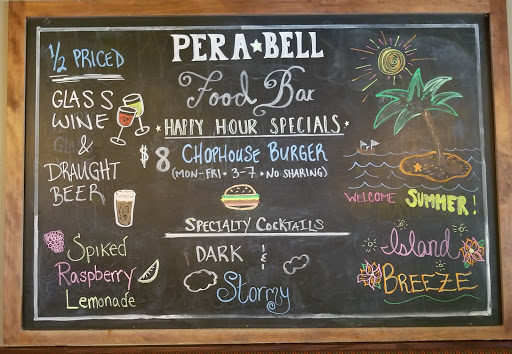 PERA★BELL
Food Bar
HAPPY HOUR SPECIALS
$8 CHOPHOUSE BURGER
(MON-FRI • 3-7 • NO SHARING)
½ PRICED
GLASS
WINE
&
DRAUGHT
BEER
WELCOME SUMMER!
SPECIALTY COCKTAILS
Spiked
Raspberry
Lemonade
DARK &
Stormy
Island
BREEZE